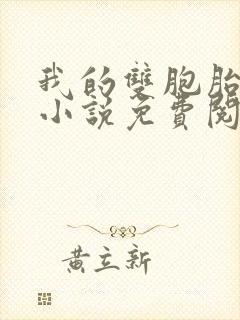 我的雙胞胎
小說免費閱
黃立新